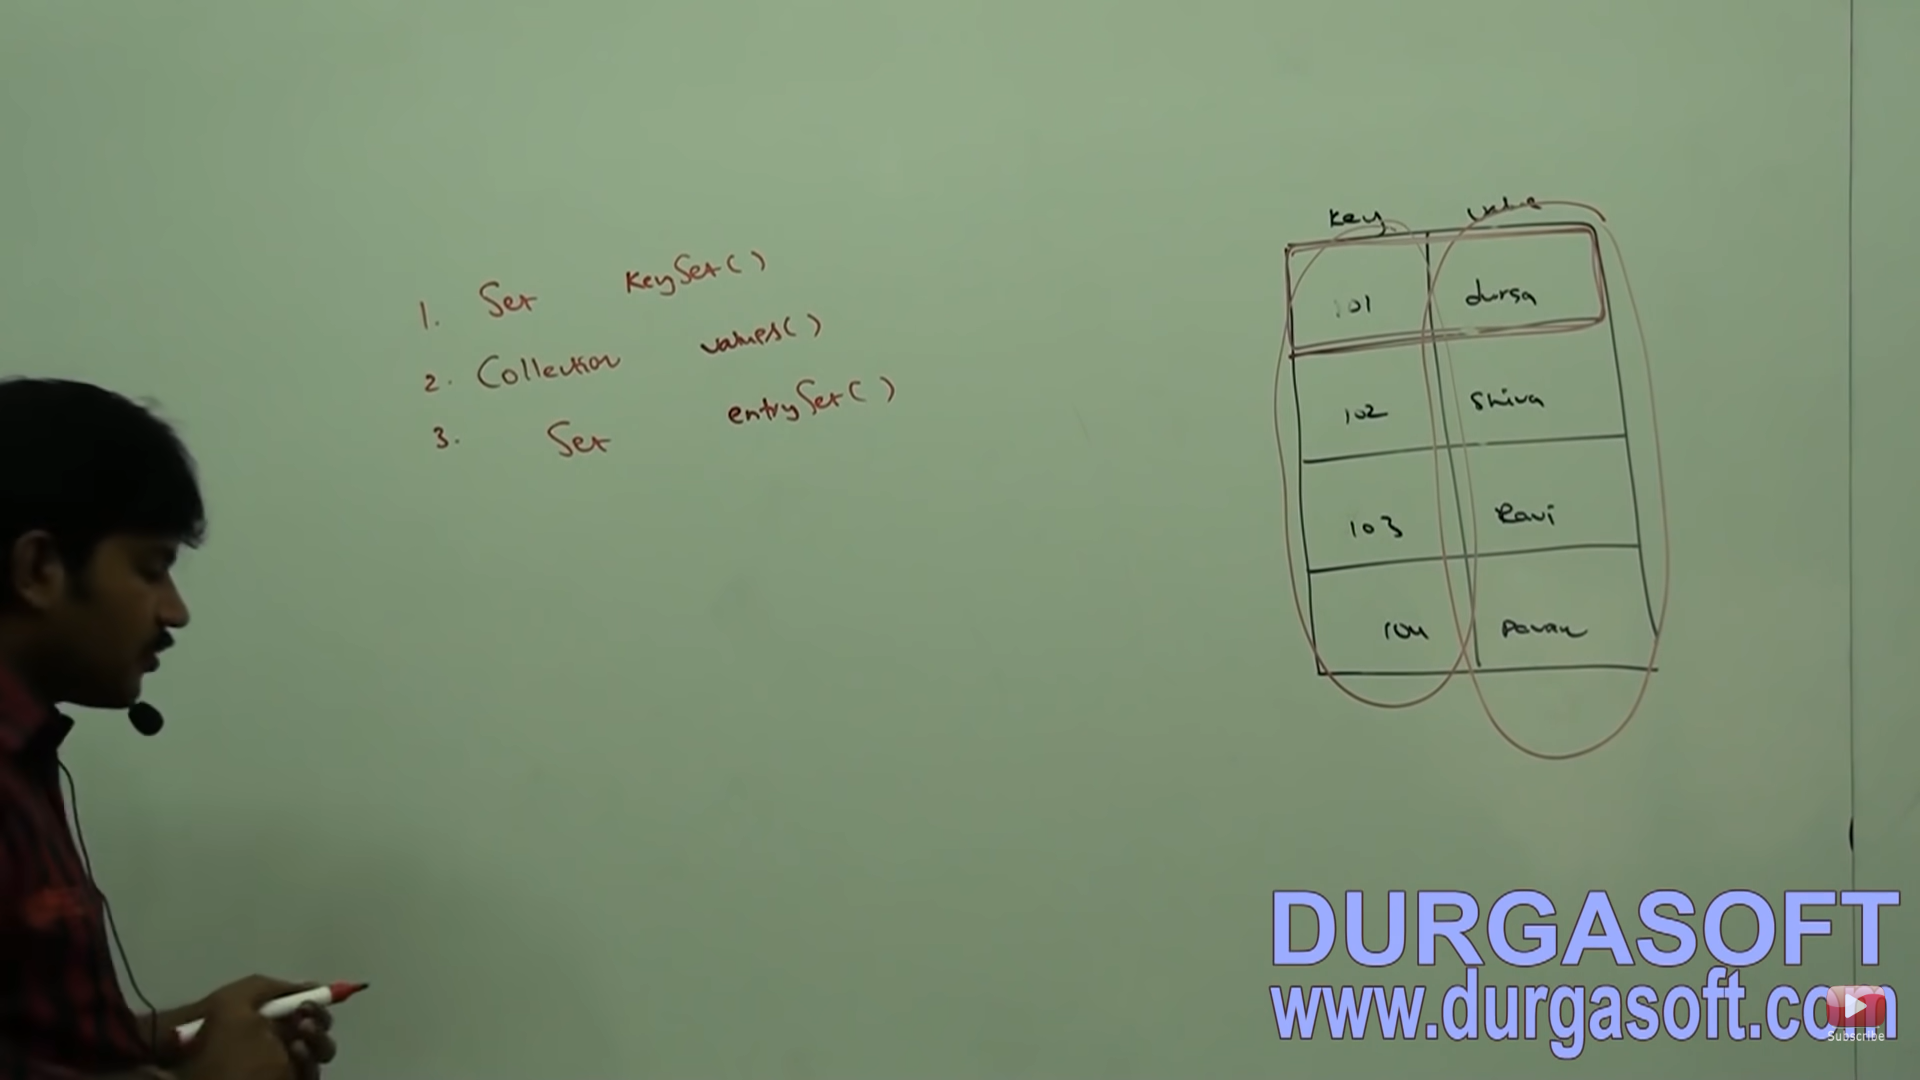 1. Set keySet()
2. Collection values()
3. Set entrySet()
key value
101 durga
102 Shiva
103 Ravi
104 Pavan
DURGASOFT
www.durgasoft.com
Subscribe